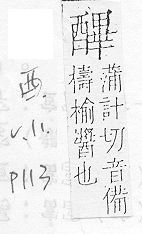 蒲計切音備
檮榆醬也
酉.
v.11.
p113